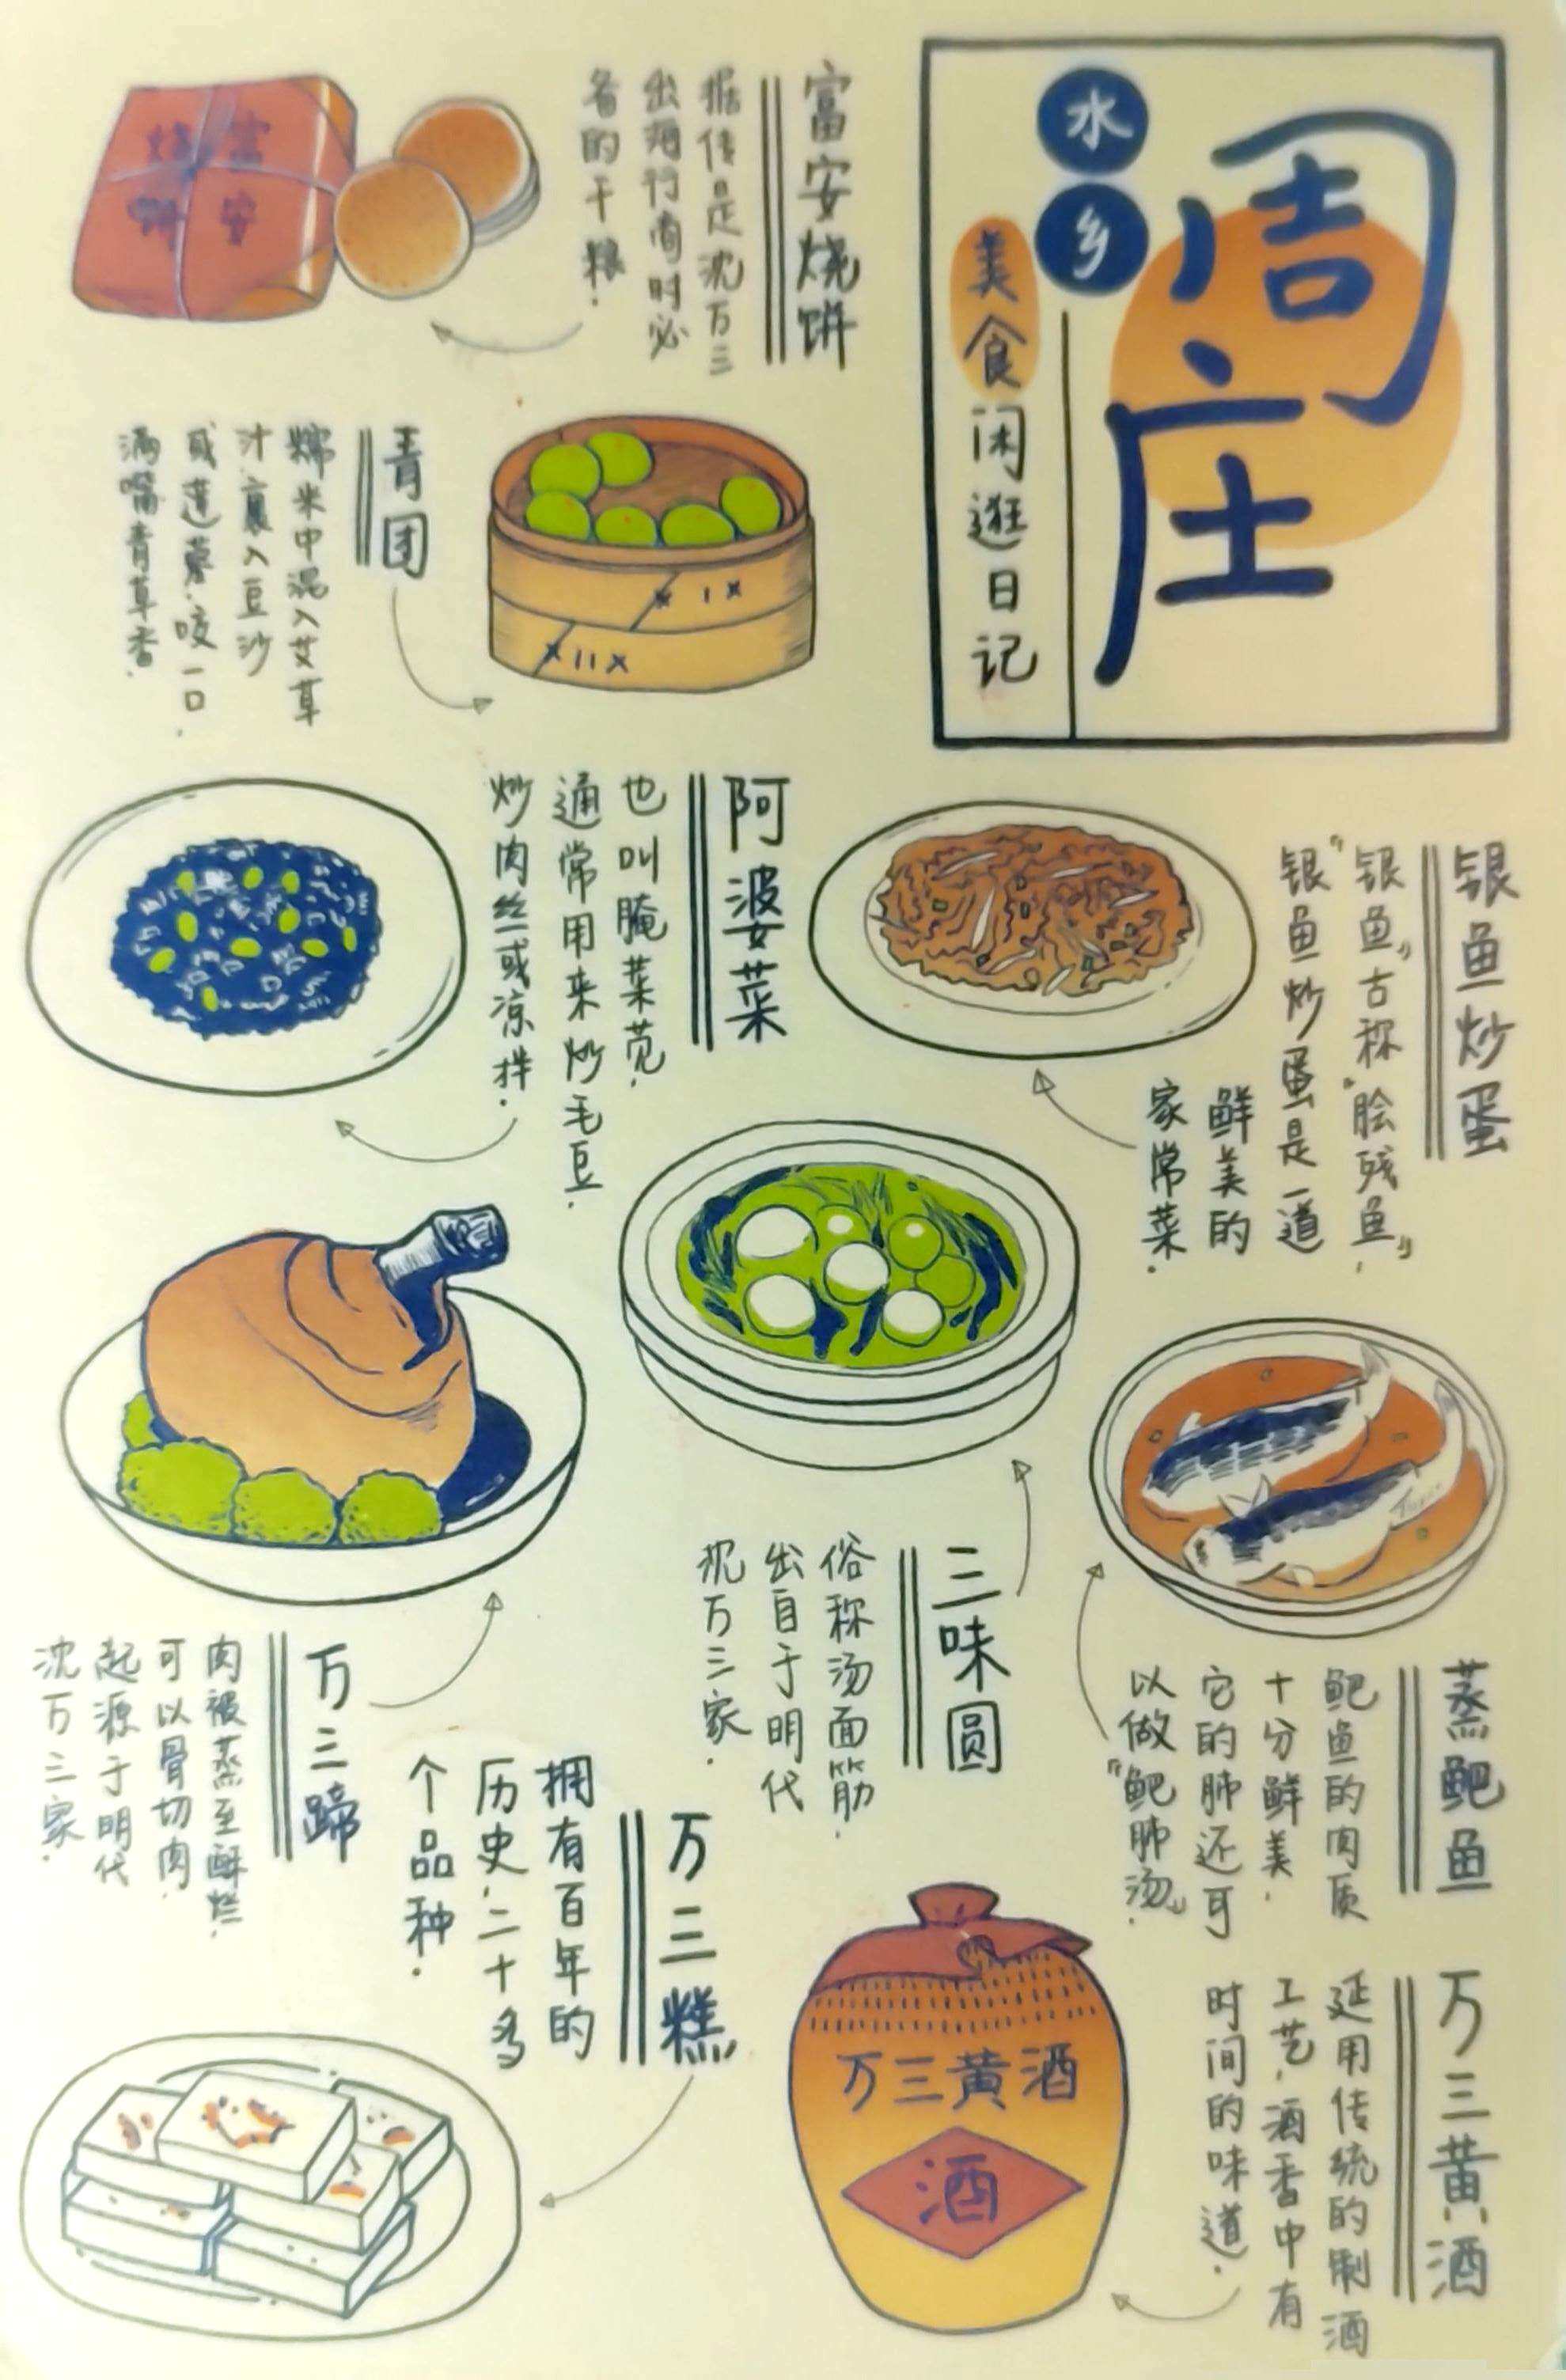 水乡
周庄
美食闲逛日记
富安烧饼
据传是沈万三
出海行商时必
备的干粮.
富安
烧饼
青团
糯米中混入艾草
汁.裹入豆沙
或莲蓉.咬一口.
满嘴青草香.
银鱼炒蛋
"银鱼"古称"脍残鱼",
银鱼炒蛋是一道
鲜美的
家常菜.
阿婆菜
也叫腌菜苋.
通常用来炒毛豆.
炒肉丝或凉拌.
蒸鲃鱼
鲃鱼的肉质
十分鲜美.
它的肺还可
以做"鲃肺汤".
三味圆
俗称汤面筋.
出自于明代
沈万三家.
万三蹄
肉被蒸至酥烂.
可以骨切肉.
起源于明代
沈万三家.
万三糕
拥有百年的
历史.二十多
个品种.
万三黄酒
延用传统的制酒
工艺,酒香中有
时间的味道.
万三黄酒
酒